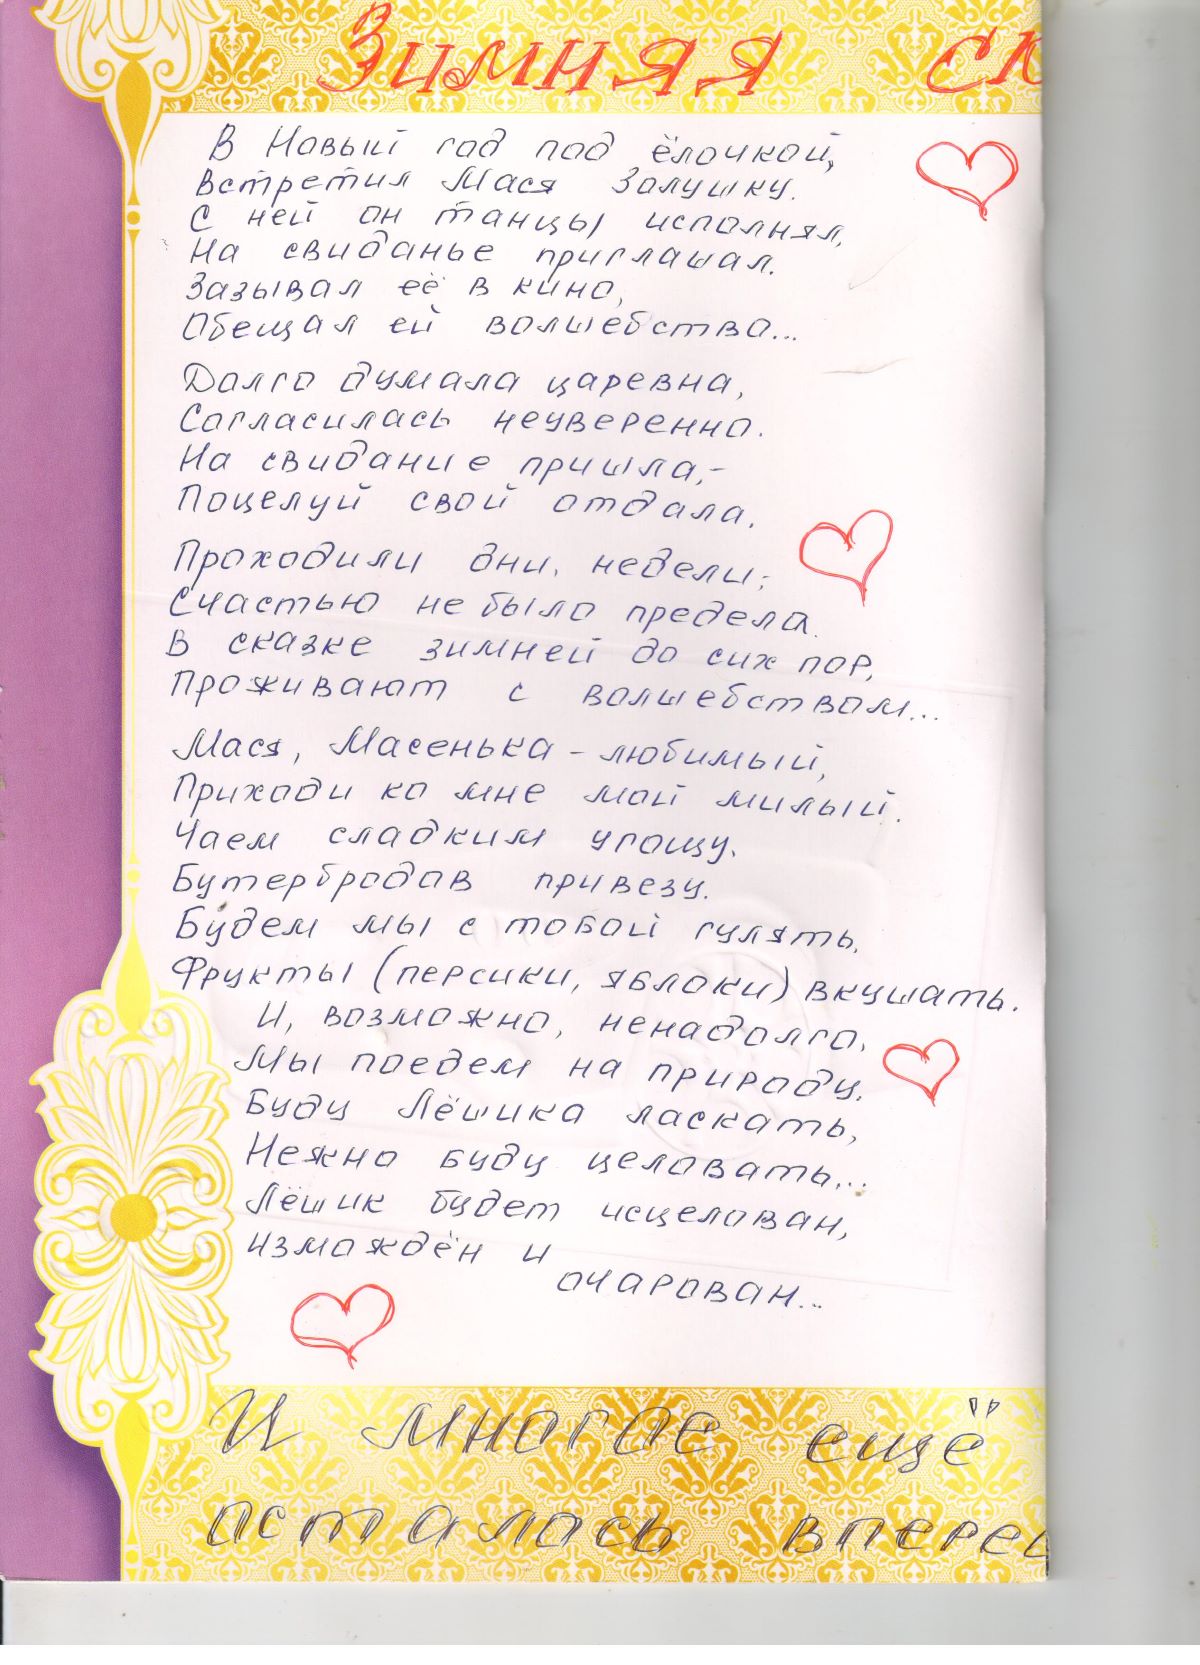 Зимняя ск
В Новый год под ёлочкой,
Встретил Мася Золушку.
С ней он танцы исполнял,
На свиданье приглашал.
Зазывал её в кино,
Обещал ей волшебство...
Долго думала царевна,
Согласилась неуверенно.
На свидание пришла,-
Поцелуй свой отдала.
Проходили дни, недели;
Счастью не было предела.
В сказке зимней до сих пор,
Проживают с волшебством...
Мася, Масенька - любимый,
Приходи ко мне мой милый.
Чаем сладким угощу.
Бутербродов привезу.
Будем мы с тобой гулять,
Фрукты (персики, яблоки) вкушать.
И, возможно, ненадолго,
Мы поедем на природу.
Буду Лёшика ласкать,
Нежно буду целовать...
Лёшик будет исцелован,
измождён и
очарован...
И многое ещё
осталось впереи